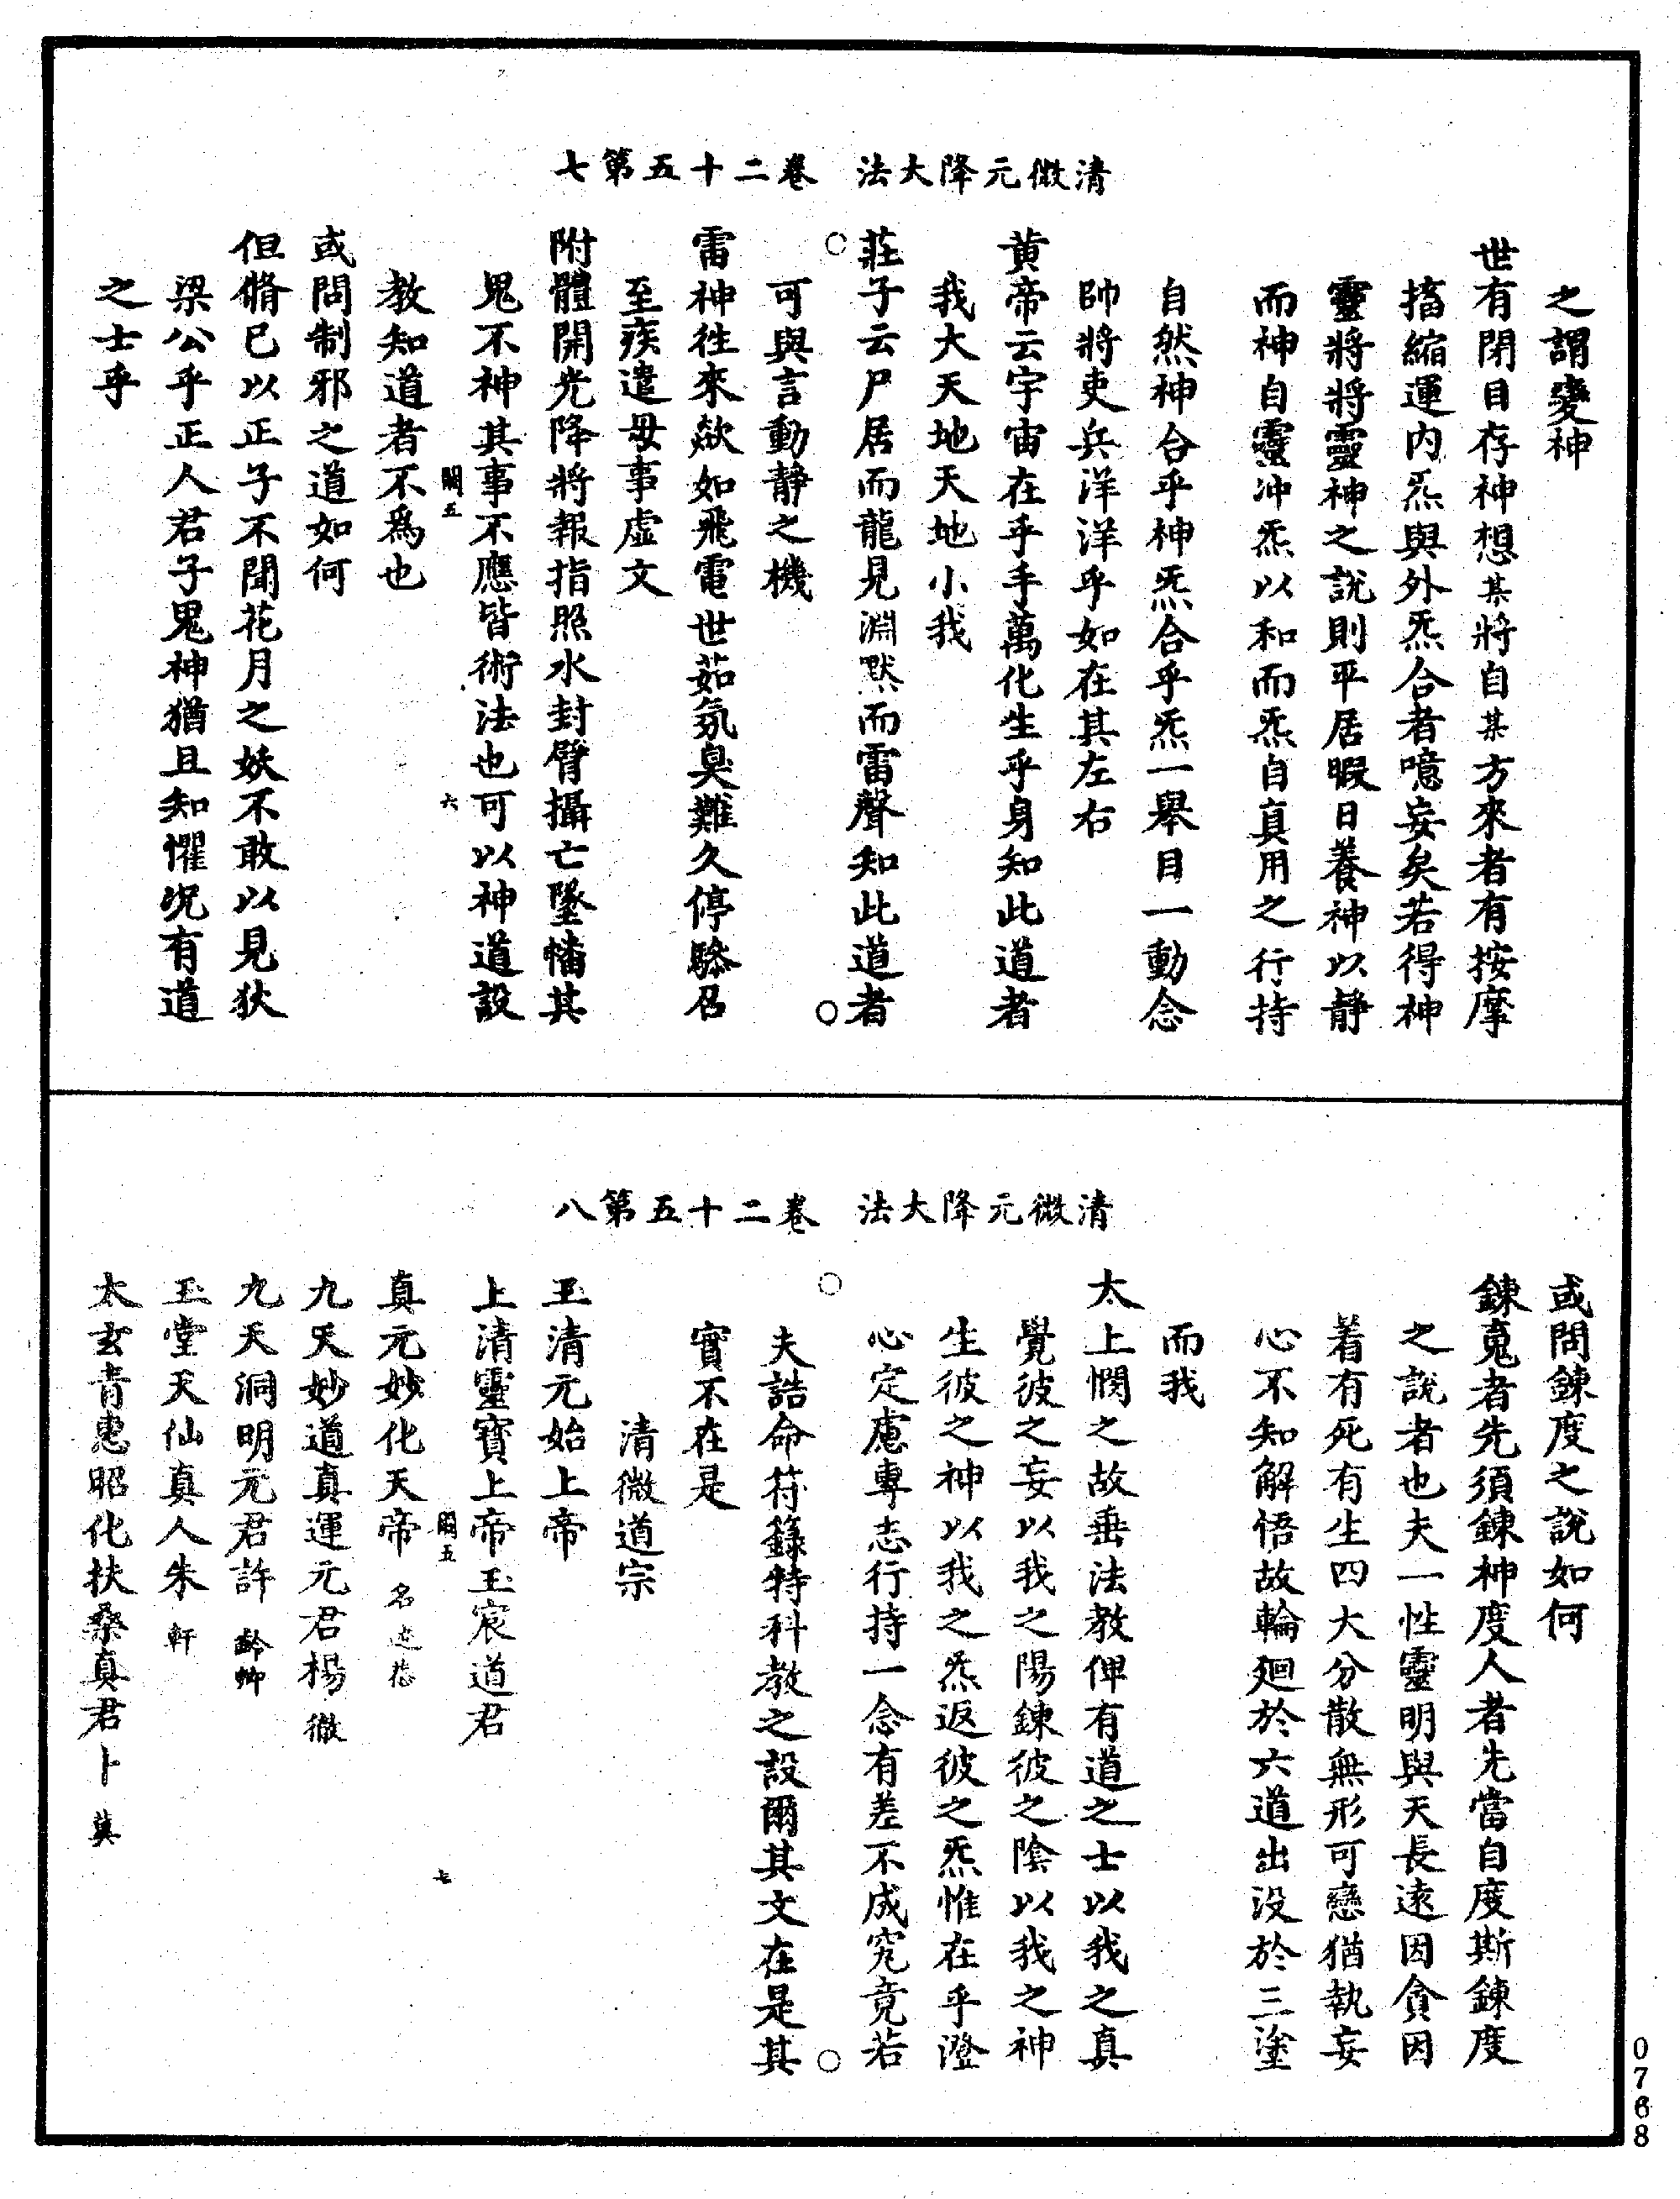 清微元降大法　卷二十五第七
之謂變神
世有閉目存神想某將自某方來者有按摩
搐縮運内炁與外炁合者噫妄矣若得神
靈將將靈神之說則平居暇日養神以靜
而神自靈沖炁以和而炁自真用之行持
自然神合乎神炁合乎炁一舉目一動念
帥將吏兵洋洋乎如在其左右
黄帝云宇宙在乎手萬化生乎身知此道者
我大天地天地小我
莊子云尸居而龍見淵默而雷聲知此道者
可與言動靜之機
雷神徃來歘如飛電世茹氛臭難久停驂召
至疾遣毋事虛文
附體開光降將報指照水封臂攝亡墜幡其
鬼不神其事不應皆術法也可以神道設
教知道者不爲也
或問制邪之道如何
但脩已以正子不聞花月之妖不敢以見狄
梁公乎正人君子鬼神猶且知懼况有道
之士乎
五
六
清微元降大法　卷二十五第八
或問鍊度之說如何
鍊䰟者先須鍊神度人者先當自度斯鍊度
之說者也夫一性靈明與天長遠因貪因
着有死有生四大分散無形可戀猶執妄
心不知解悟故輪廻於六道出没於三塗
而我
太上憫之故垂法教俾有道之士以我之真
覺彼之妄以我之陽鍊彼之陰以我之神
生彼之神以我之炁返彼之炁惟在乎澄
心定慮專志行持一念有差不成究竟若
夫誥命符籙特科教之設爾其文在是其
實不在是
清微道宗
玉清元始上帝
上清靈寶上帝玉宸道君
真元妙化天帝名
九天妙道真運元君楊徹
九天洞明元君許齡
玉堂天仙真人朱軒
太玄青惠昭化扶桑真君卜蓂
五
七
0768